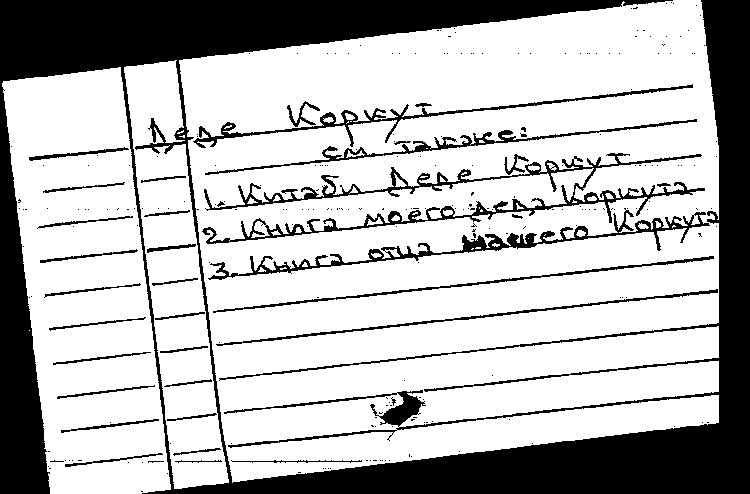 Деде Коркут
см. также:
1. Китаби Деде Коркут
2. Книга моего деда Коркута
3. Книга отца нашего Коркута